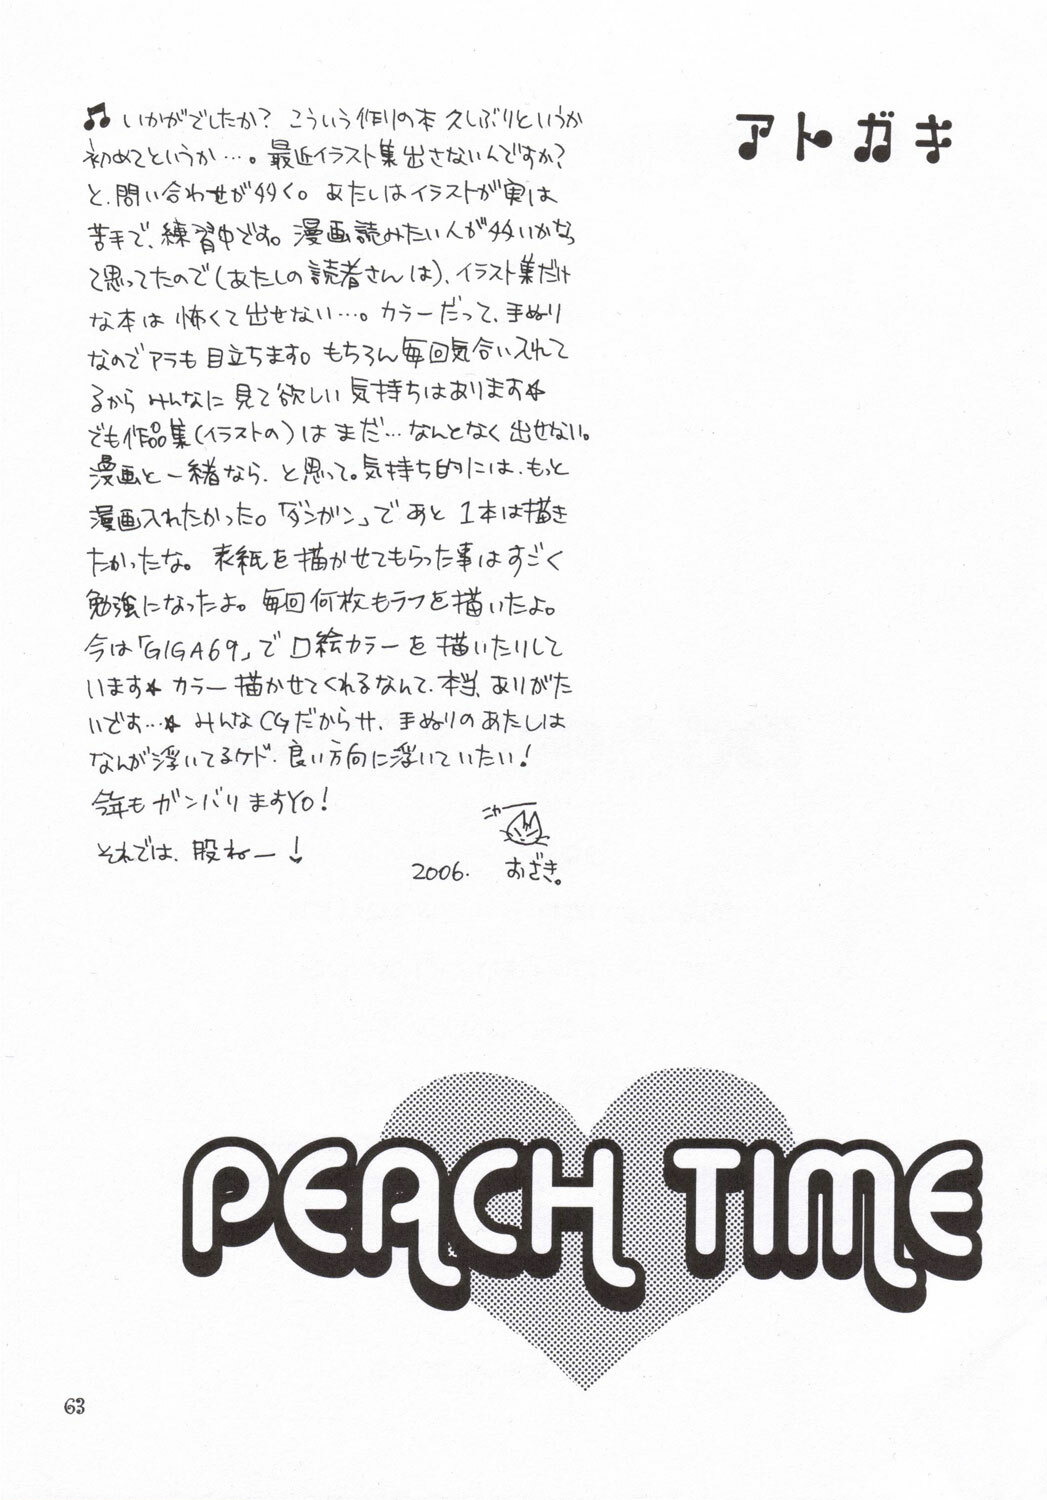 アトガキ
♫いかがでしたか? こういう作りの本久しぶりというか
初めてというか…。最近イラスト集出さないんですか?
と、問い合わせが多く。あたしはイラストが実は
苦手で、練習中です。漫画読みたい人が多いかな
て思ってたので(あたしの読者さんは)、イラスト集だけ
な本は怖くて出せない…。カラーだって、手ぬり
なのでアラも目立ちます。もちろん毎回気合い入れて
るからみんなに見て欲しい気持ちはあります★
でも作品集(イラストの)はまだ…なんとなく出せない。
漫画と一緒なら、と思って。気持ち的には、もっと
漫画入れたかった。「ダンガン」であと1本は描き
たかったな。表紙を描かせてもらった事はすごく
勉強になったよ。毎回何枚もラフを描いたよ。
今は「GIGA69」で口絵カラーを描いたりして
います★カラー描かせてくれるなんて、本当、ありがた
いです…★みんなCGだからサ、手ぬりのあたしは
なんが浮いてるケド、良い方向に浮いていたい!
今年もガンバりますYO!
それでは、股ねー!
2006. おざき。
PEACH TIME
63